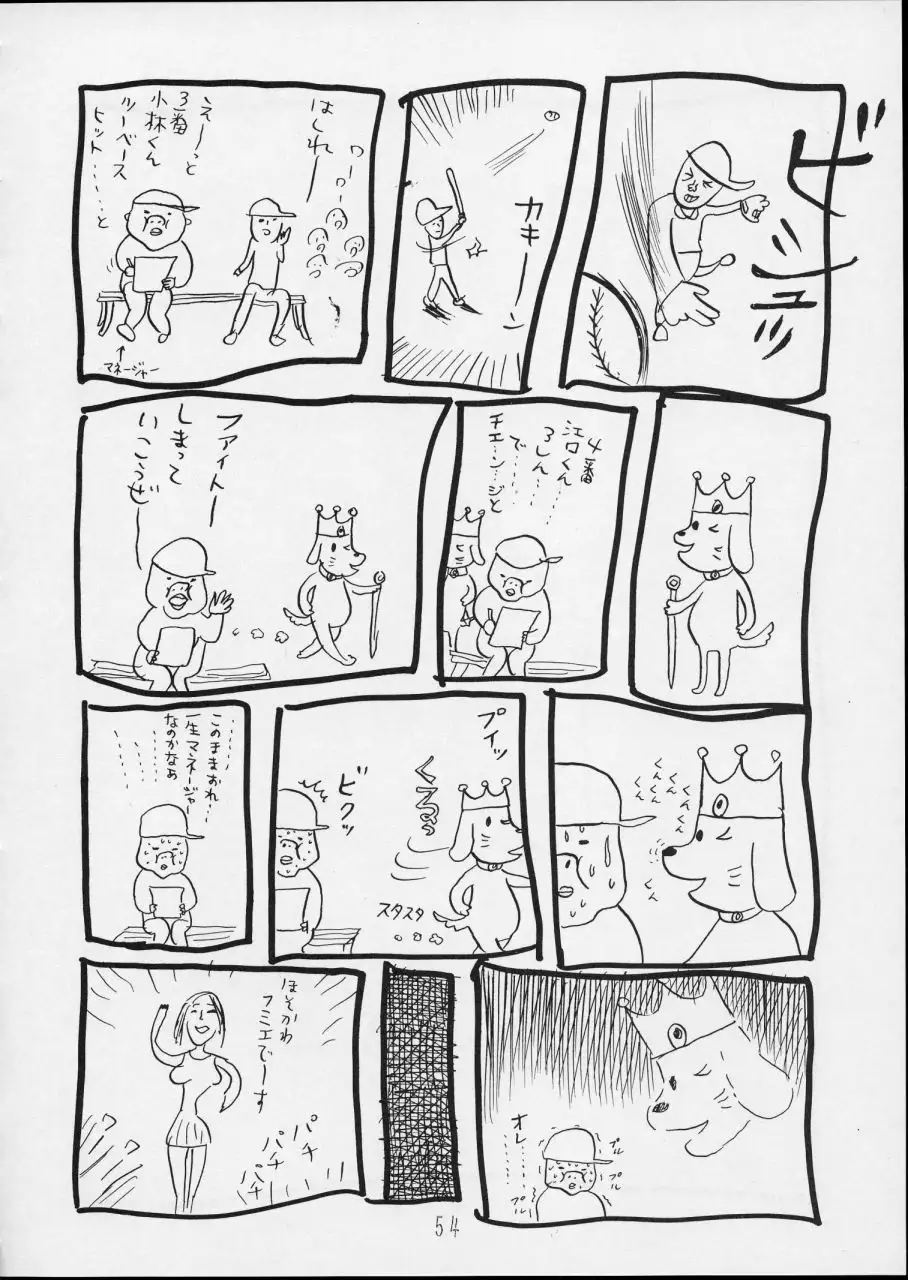 ビシュッ
カキーーン
ワーワー
はしれー
えーっと
3番
小林くん
ツーベース
ヒット……と
マネージャー
4番
江口くん…
3しん…
で……
チェーンジと
ファイトー
しまって
いこうぜー
くんくん
くんくん
くん
くんくん
くん
プイッ
くるっ
ビクッ
スタスタ
このままおれ…
一生マネージャー
なのかなぁ
オレ……
プル
プル
プル
ほそかわ
フミエでーす
パチ
パチ
パチ
54